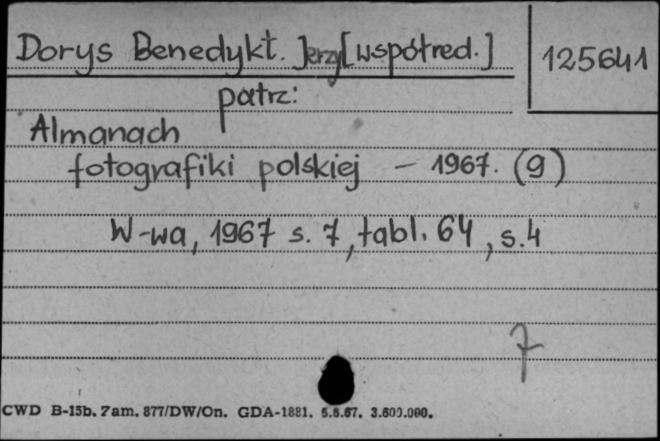 Dorys Benedykt. Jerzy [współred.]
125641
patrz:
Almanach
fotografiki polskiej – 1967. (9)
W-wa, 1967 s. 7, tabl. 64, s. 4
7
CWD B-15b. Zam. 877/DW/On. GDA-1881. 5.6.67. 3.600.000.